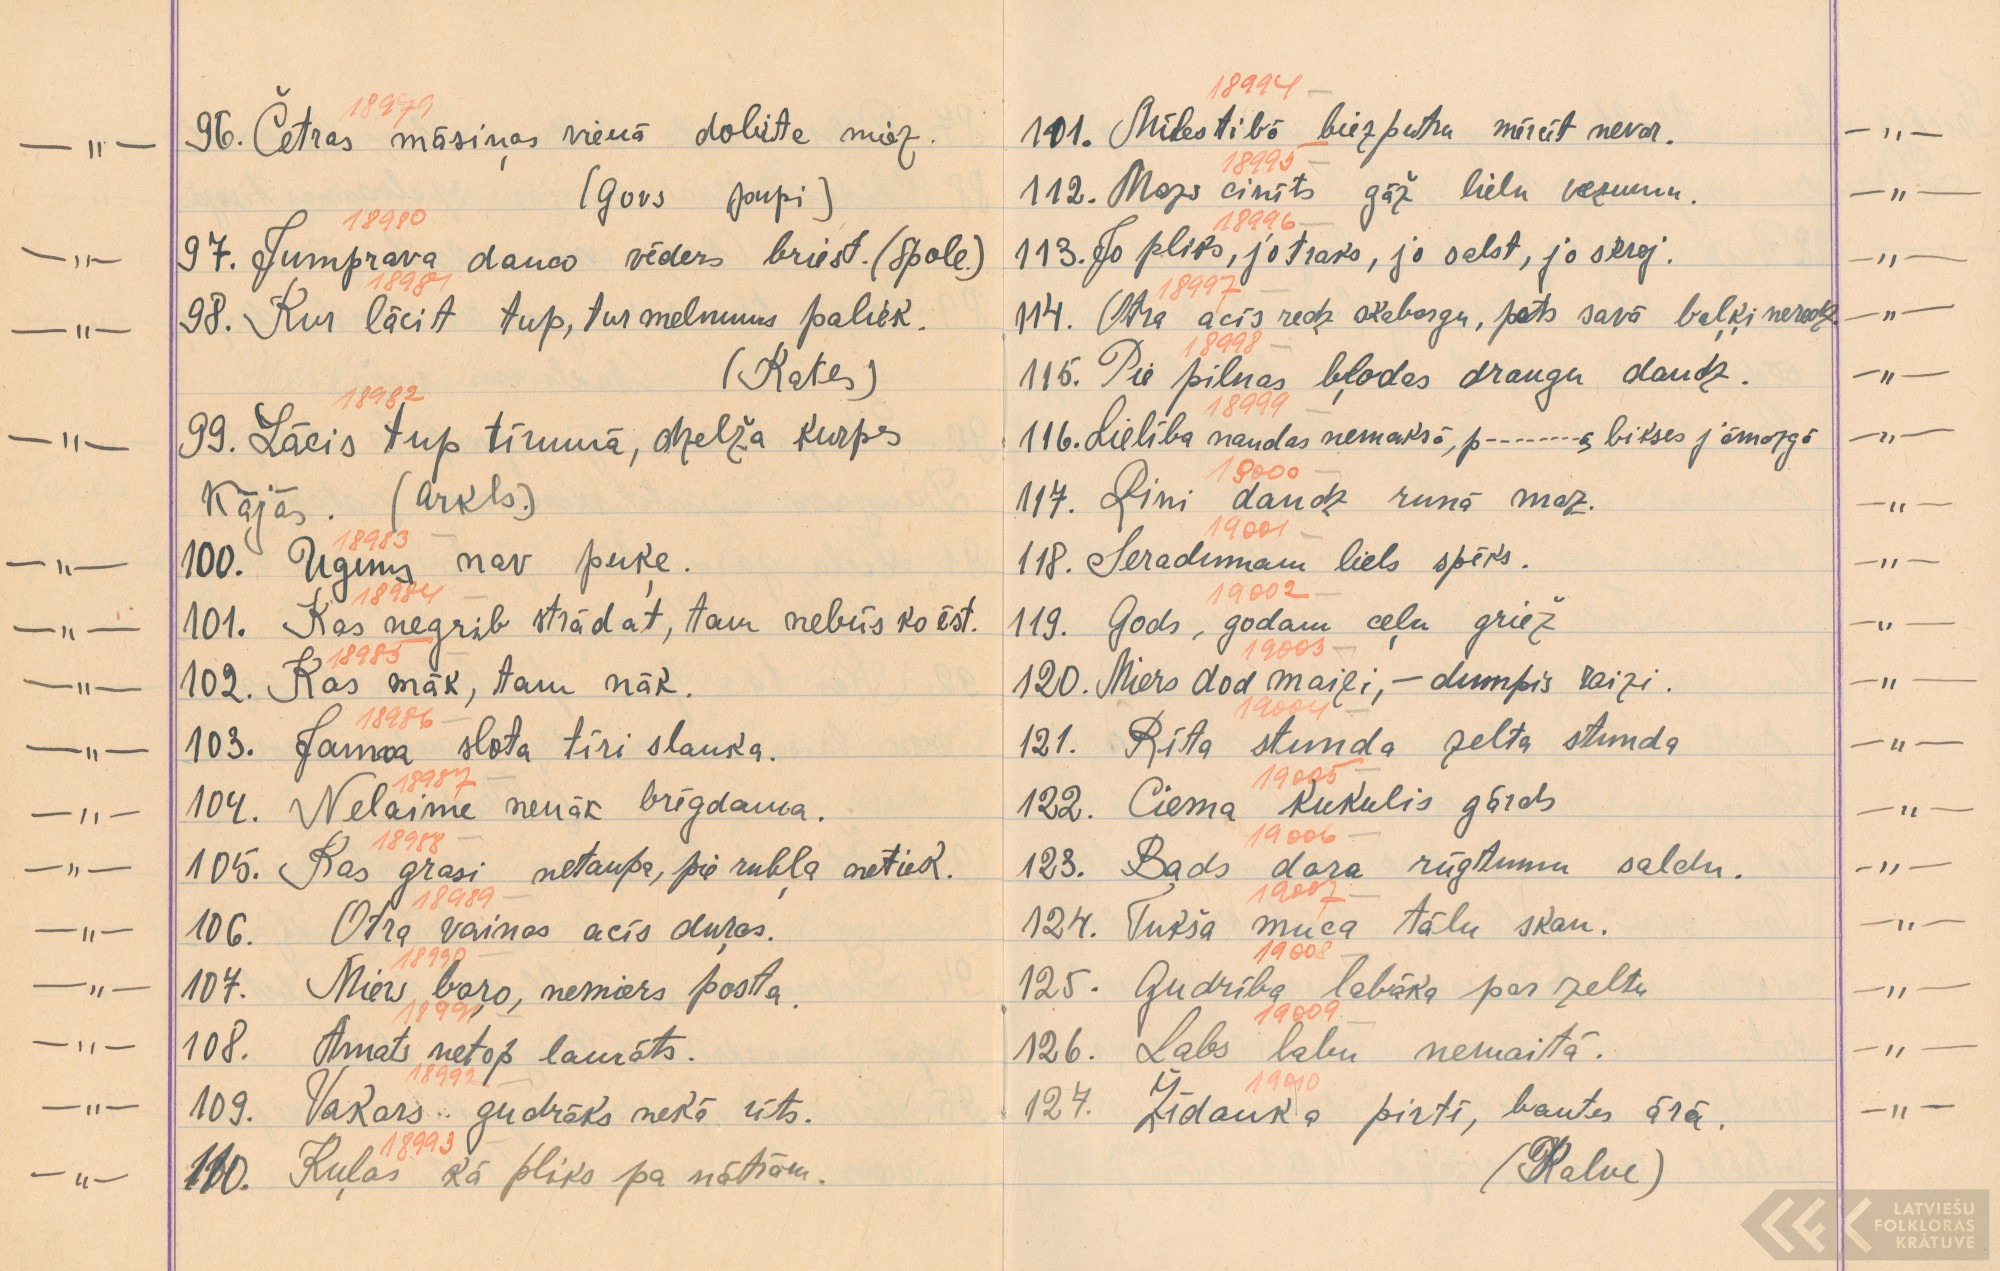 18979
— " — 96. Četras māsiņas vienā dobītē miez.
(Govs pupi)
18980
— " — 97. Jumprava danco vēders briest. (Spole.)
18981
— " — 98. Kur lācit tup, tur melnums paliek.
(Katls)
18982
— " — 99. Lācis tup tīrumā, dzelža kurpes
kājās. (Arkls.)
18983 —
— " — 100. Uguns nav puķe.
18984 —
— " — 101. Kas negrib strādāt, tam nebūs ko ēst.
18985 —
— " — 102. Kas māk, tam nāk.
18986 —
— " — 103. Jauna slota tīri slauka.
18987 —
— " — 104. Nelaime nenāk brēgdama.
18988 —
— " — 105. Kas grasi netaupa, pie rubļa netiek.
18989 —
— " — 106. Otra vainas acīs duŗas.
18990 —
— " — 107. Miers baŗo, nemiers posta.
18991 —
— " — 108. Amats netop laurāts.
18992 —
— " — 109. Vakars gudrāks nekā rīts.
18993 —
— " — 110. Kuļas kā pliks pa nātrām.
18994 —
101. Mīlestībā biezputru mīcīt nevar. — " —
18995 —
112. Mazs cinīts gāž lielu vezumu. — " —
18996 —
113. Jo pliks, jo traks, jo salst, jo skrej. — " —
18997 —
114. Otra acīs redz skabargu, pats savā baļķi neredz. — " —
18998 —
115. Pie pilnas bļodas draugu daudz. — " —
18999 —
116. Lielība naudas nemaksā, p--------s bikses jāmazgā — " —
19000 —
117. Zini daudz runā maz. — " —
19001 —
118. Ieradumam liels spēks. — " —
19002 —
119. Gods, godam ceļu griež — " —
19003 —
120. Miers dod maizi, — dumpis raizi. — " —
19004 —
121. Rīta stunda zelta stunda — " —
19005 —
122. Ciema kukulis gārds — " —
19006 —
123. Bads dara rūgtumu saldu. — " —
19007 —
124. Tukša muca tālu skan. — " —
19008 —
125. Gudrība labāka par zeltu — " —
19009 —
126. Labs labu nemaitā. — " —
19010
127. Žīdauka pirtī, bantes ārā. — " —
(Kalve)
LATVIEŠU
FOLKLORAS
KRĀTUVE